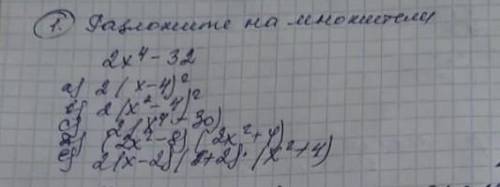 1. Разложите на множители
2x⁴ - 32
a) 2(x-4)²
b) 2(x²-4)²
c) 2(x⁴-30)
d) (2x²-8)(2x²+4)
e) 2(x-2)(x+2)·(x²+4)